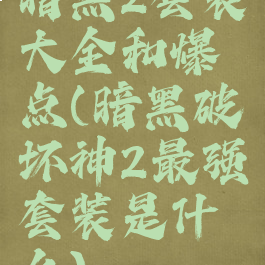 暗黑2套装
大全和爆
点(暗黑破
坏神2最强
套装是什
么)